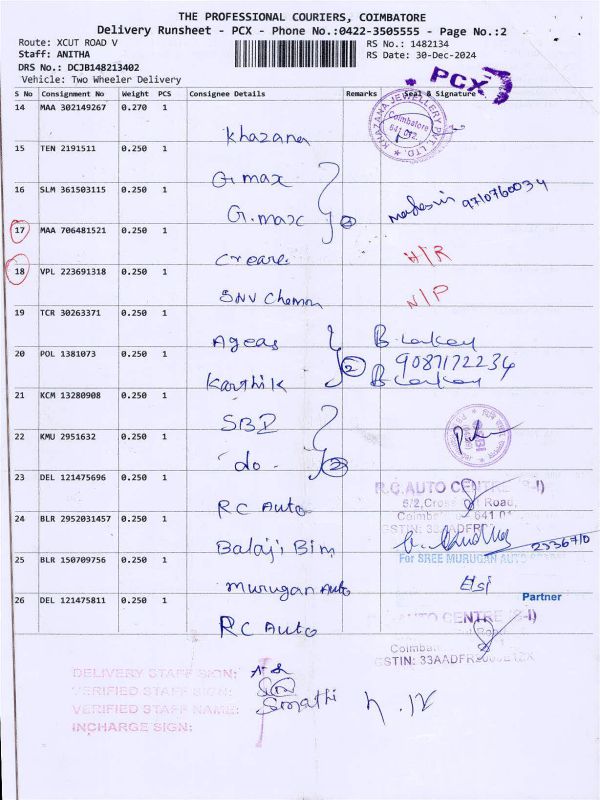 THE PROFESSIONAL COURIERS, COIMBATORE
Delivery Runsheet - PCX - Phone No.:0422-3505555 - Page No.:2
Route: XCUT ROAD V
RS No.: 1482134
Staff: ANITHA
RS Date: 30-Dec-2024
DRS No.: DCJB148213402
Vehicle: Two Wheeler Delivery
PCX
S No Consignment No Weight PCS Consignee Details Remarks Seal & Signature
14 MAA 302149267 0.270 1 Khazana
KHAZANA JEWELLERY PVT. LTD. Coimbatore 641 012
15 TEN 2191511 0.250 1 G.max
16 SLM 361503115 0.250 1 G.max 2 9710760034
17 MAA 706481521 0.250 1 Creare
18 VPL 223691318 0.250 1 SNV N/P
19 TCR 30263371 0.250 1 Ageas
20 POL 1381073 0.250 1 Karthik 2 9087172234
21 KCM 13280908 0.250 1 SBI
22 KMU 2951632 0.250 1 do. 2
23 DEL 121475696 0.250 1 RC Auto
R.C.AUTO CENTRE
24 BLR 2952031457 0.250 1 Balaji Bim
25 BLR 150709756 0.250 1 Murugan Auto
For SREE MURUGAN AUTO
Partner
26 DEL 121475811 0.250 1 RC Auto
AUTO CENTRE
DELIVERY STAFF SIGN:
VERIFIED STAFF SIGN:
VERIFIED STAFF NAME: Sumathi
INCHARGE SIGN: